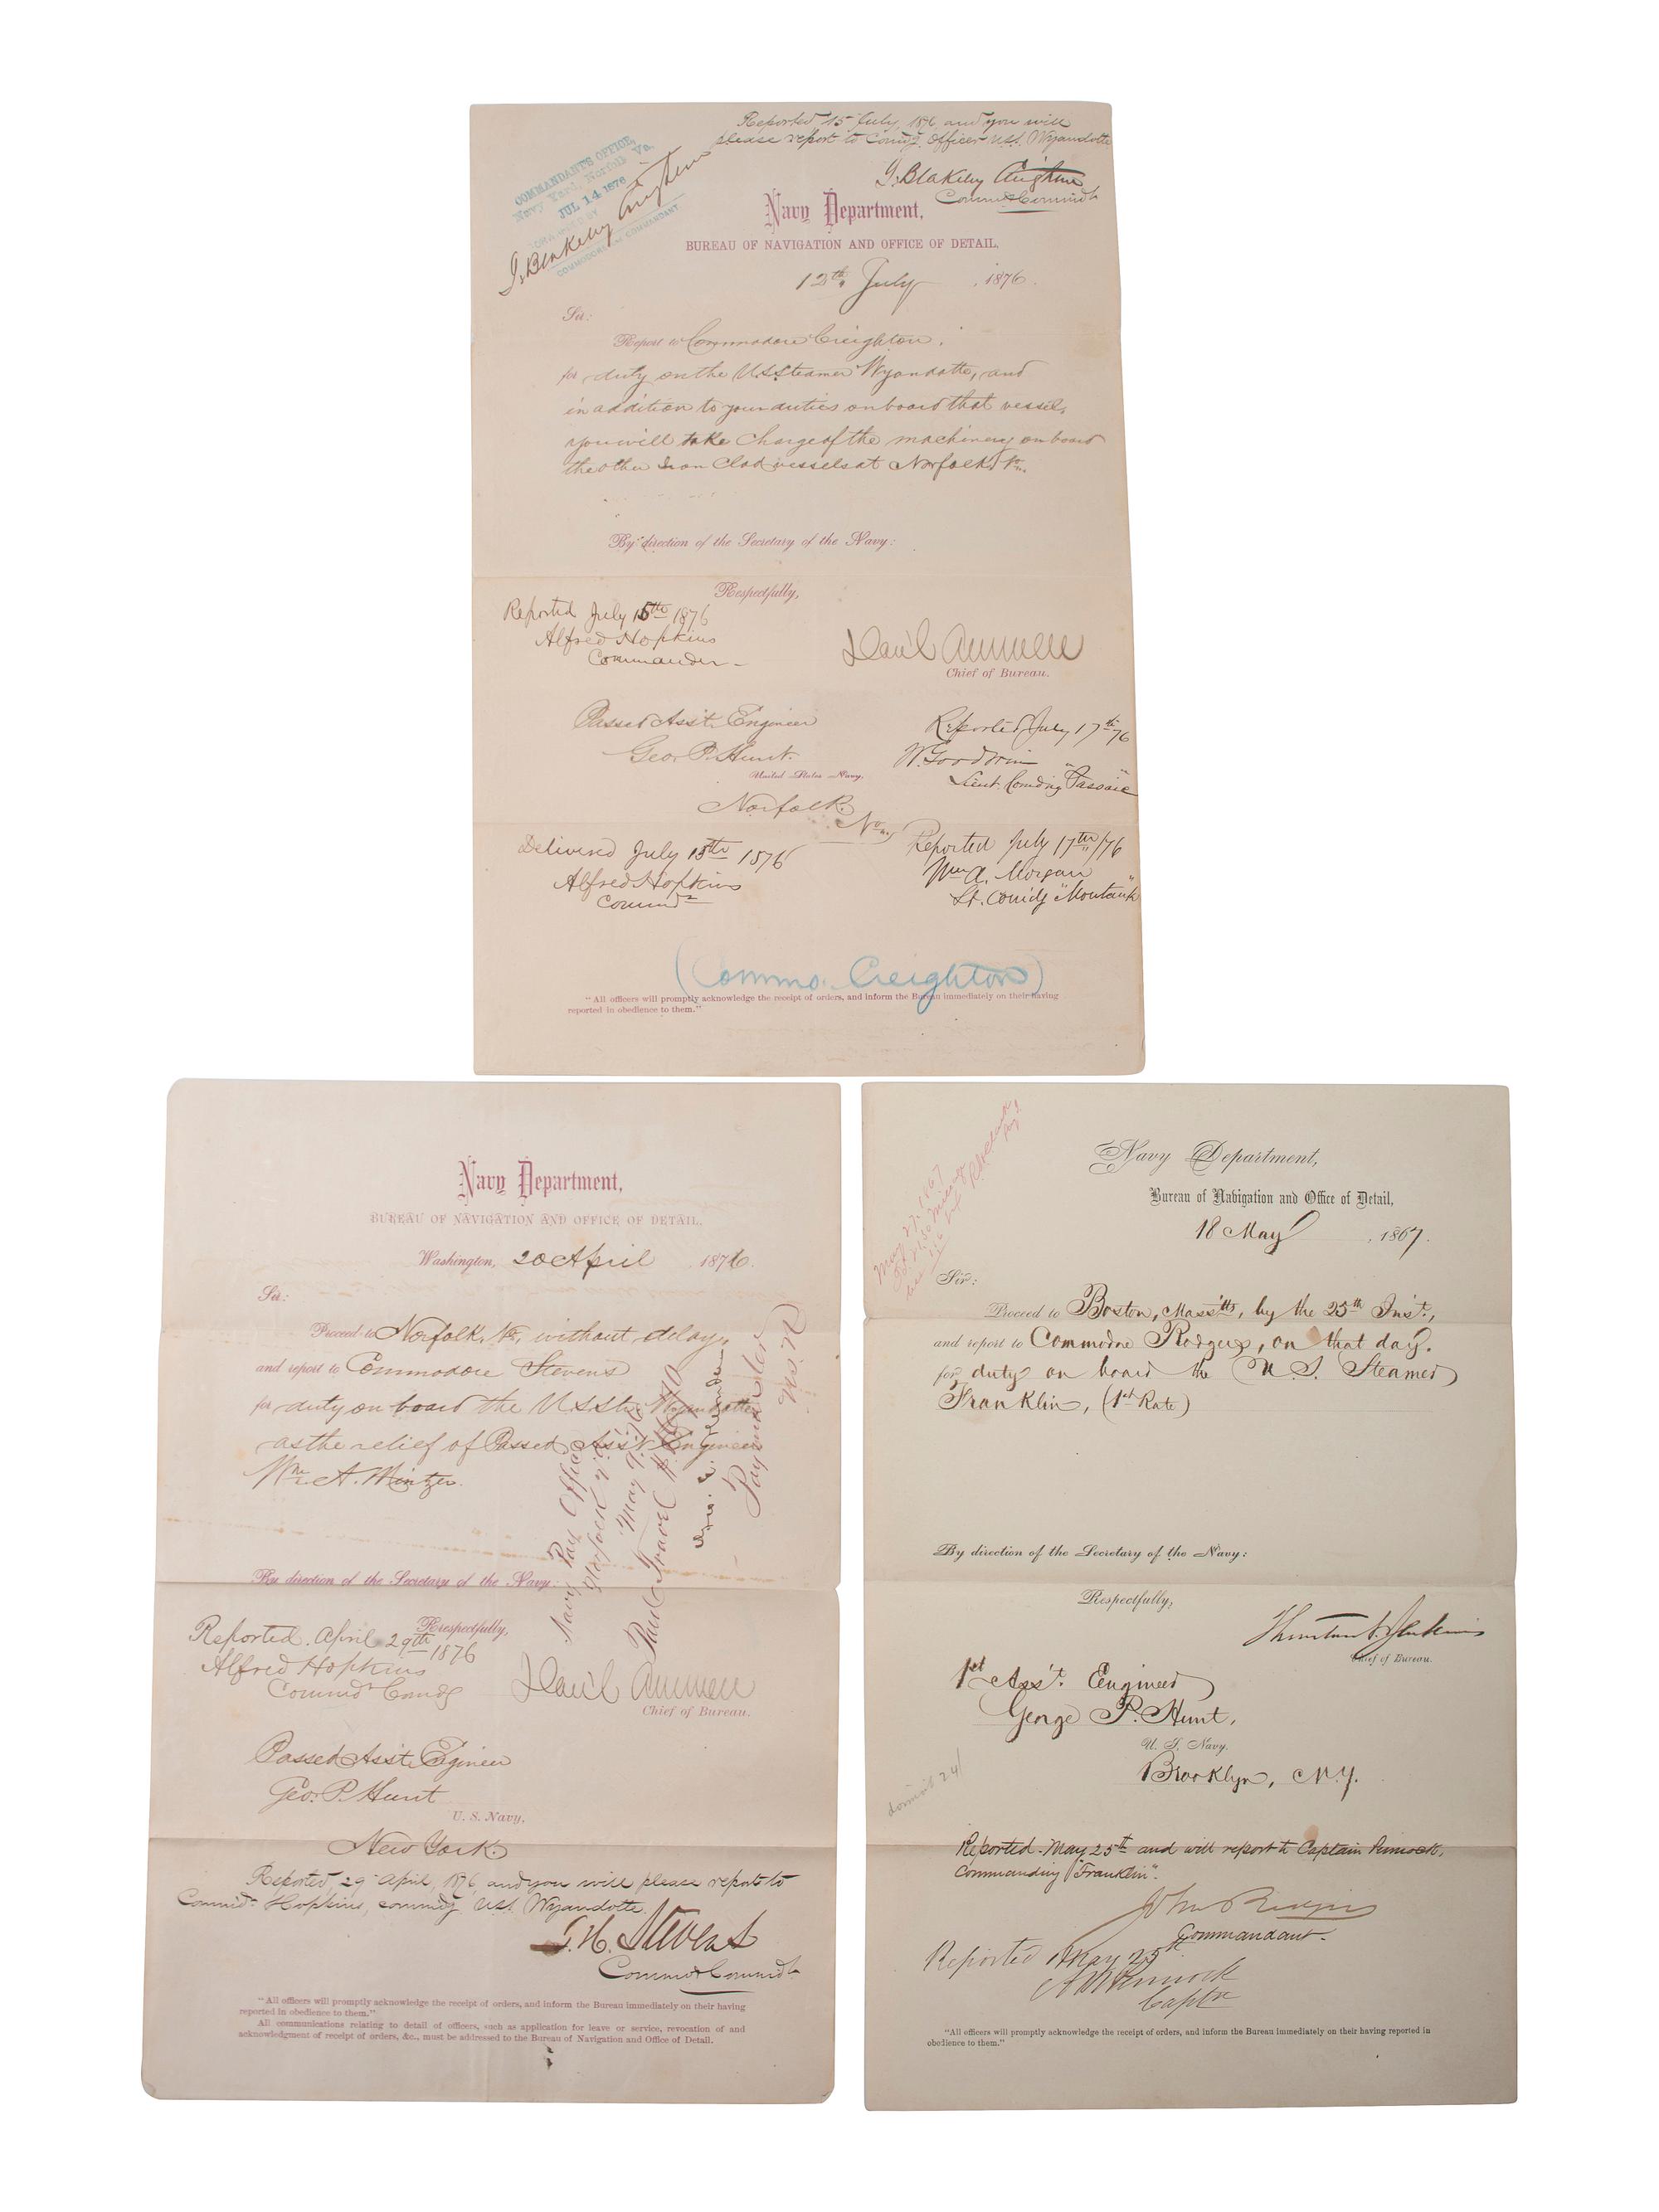 Reported 15 July, 1876, and you will
please report to Comd'g. Officer U.S.S. Wyandotte
J. Blakeley Creighton
Commo & Commd't
COMMANDANT'S OFFICE,
Navy Yard, Norfolk Va.
JUL 14 1876
J. Blakeley Creighton
COMMODORE and COMMANDANT
Navy Department,
BUREAU OF NAVIGATION AND OFFICE OF DETAIL,
12th July , 1876.
Sir:
Report to Commodore Creighton.
for duty on the U.S. Steamer Wyandotte, and
in addition to your duties on board that vessel,
you will take Charge of the machinery on board
the other Iron Clad vessels at Norfolk, Va.
By direction of the Secretary of the Navy:
Respectfully,
Reported July 15th 1876
Alfred Hopkins
Commander
Dan'l Ammen
Chief of Bureau.
Passed Ass't. Engineer
Geo. P. Hunt.
United States Navy,
Norfolk.
Va.
Reported July 17th 76
W. Goodwin
Lieut. Comdng "Passaic"
Delivered July 15th 1876
Alfred Hopkins
Commdr
Reported July 17th /76
Wm A. Morgan
Lt. Comd'g "Montauk"
(Commo. Creighton)
"All officers will promptly acknowledge the receipt of orders, and inform the Bureau immediately on their having
reported in obedience to them."
Navy Department,
BUREAU OF NAVIGATION AND OFFICE OF DETAIL,
Washington, 20 April , 1876.
Sir:
Proceed to Norfolk, Va, without delay,
and report to Commodore Stevens
for duty on board the U.S. Str. Wyandotte
as the relief of Passed Ass't Engineer
Wm. A. Mintzer.
Navy Pay Office
Norfolk Va.
May 9. 1876
Paid Travel
Paymaster
U.S.N.
By direction of the Secretary of the Navy:
Respectfully,
Reported. April 29th 1876
Alfred Hopkins
Commdr Comdg
Dan'l Ammen
Chief of Bureau.
Passed Ass't Engineer
Geo. P. Hunt
U. S. Navy,
New York.
Reported, 29 April, 1876, and you will please report to
Commdr Hopkins, commdg U.S.S. Wyandotte.
T. H. Stevens
Commo & Commd't
"All officers will promptly acknowledge the receipt of orders, and inform the Bureau immediately on their having
reported in obedience to them."
All communications relating to detail of officers, such as application for leave or service, revocation of and
acknowledgment of receipt of orders, &c., must be addressed to the Bureau of Navigation and Office of Detail.
May 27. 1867
Navy Department,
Bureau of Navigation and Office of Detail,
18 May , 1867.
Sir:
Proceed to Boston, Mass'tts, by the 25th Inst.,
and report to Commodore Rodgers, on that day,
for duty on board the U. S. Steamer
Franklin, (1st Rate)
By direction of the Secretary of the Navy:
Respectfully,
Thornton A. Jenkins
Chief of Bureau.
1st Ass't. Engineer
George P. Hunt,
U. S. Navy.
Brooklyn, N.Y.
Reported May 25th and will report to Captain Pennock,
Commanding "Franklin".
John Rodgers
Commandant
Reported May 25th
A M Pennock
Captn
"All officers will promptly acknowledge the receipt of orders, and inform the Bureau immediately on their having reported in
obedience to them."